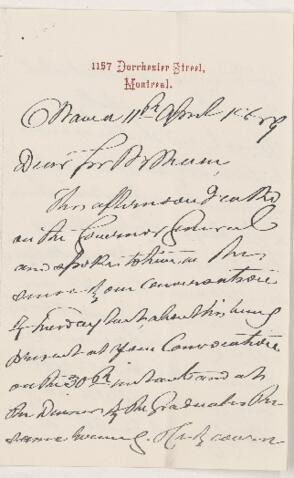 1157 Dorchester Street,
Montreal.
Ottawa 11th April 1879
Dear
This afternoon I called
on the Governor General
and spoke to him in the
sense of our conversation
of Tuesday last about his being
present at your Convocation
on the 30th instant and at
the Dinner of the Graduates the
same evening. He